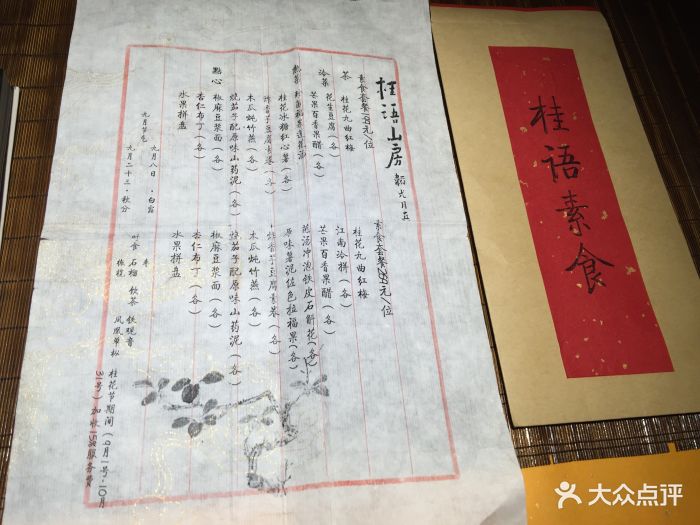 桂语山房
九月
素食套餐
元/位
茶
桂花九曲红梅
冷菜
花生豆腐(各)
芒果百香果醋(各)
热菜
桂花冰糖红心薯(各)
炸香芋豆腐素卷(各)
木瓜蚝竹燕(各)
烧茄子配原味山药泥(各)
點心
椒麻豆浆面(各)
杏仁布丁(各)
水果拼盘
素食套餐
元/位
桂花九曲红梅
江南冷拼(各)
芒果百香果醋(各)
蒸汤冲泡铁皮石斛花(各)
原味薯泥伍色拉福果(各)
炸香芋豆腐素卷(各)
木瓜蚝竹燕(各)
烧茄子配原味山药泥(各)
椒麻豆浆面(各)
杏仁布丁(各)
水果拼盘
九月节气
九月八日·白露
九月二十三·秋分
叶食
石榴
饮茶
铁观音
凤凰单枞
桂花节期间(9月1号-10月
31号)加收15%服务费
桂语素食
大众点评